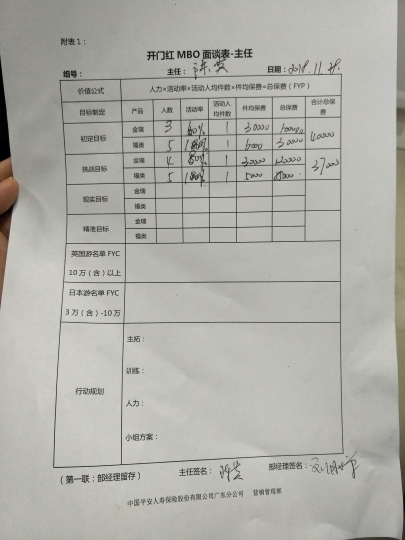 附表1：
开门红 MBO 面谈表-主任
组号： 主任： 日期：2018.11.28.
价值公式 人力×活动率×活动人均件数×件均保费=总保费（FYP）
目标制定 产品 人数 活动率 活动人均件数 件均保费 总保费 合计总保费
初定目标 金瑞 3 60% 1 30000
福类 5 100% 1 6000 30000
挑战目标 金瑞 4 80% 1 30000
福类 5 100% 1 5000
现实目标 金瑞
福类
精准目标 金瑞
福类
英国游名单 FYC
10 万（含）以上
日本游名单 FYC
3 万（含）-10 万
行动规划
主拓：
训练：
人力：
小组方案：
（第一联：部经理留存） 主任签名： 部经理签名：
中国平安人寿保险股份有限公司广东分公司 营销管理部